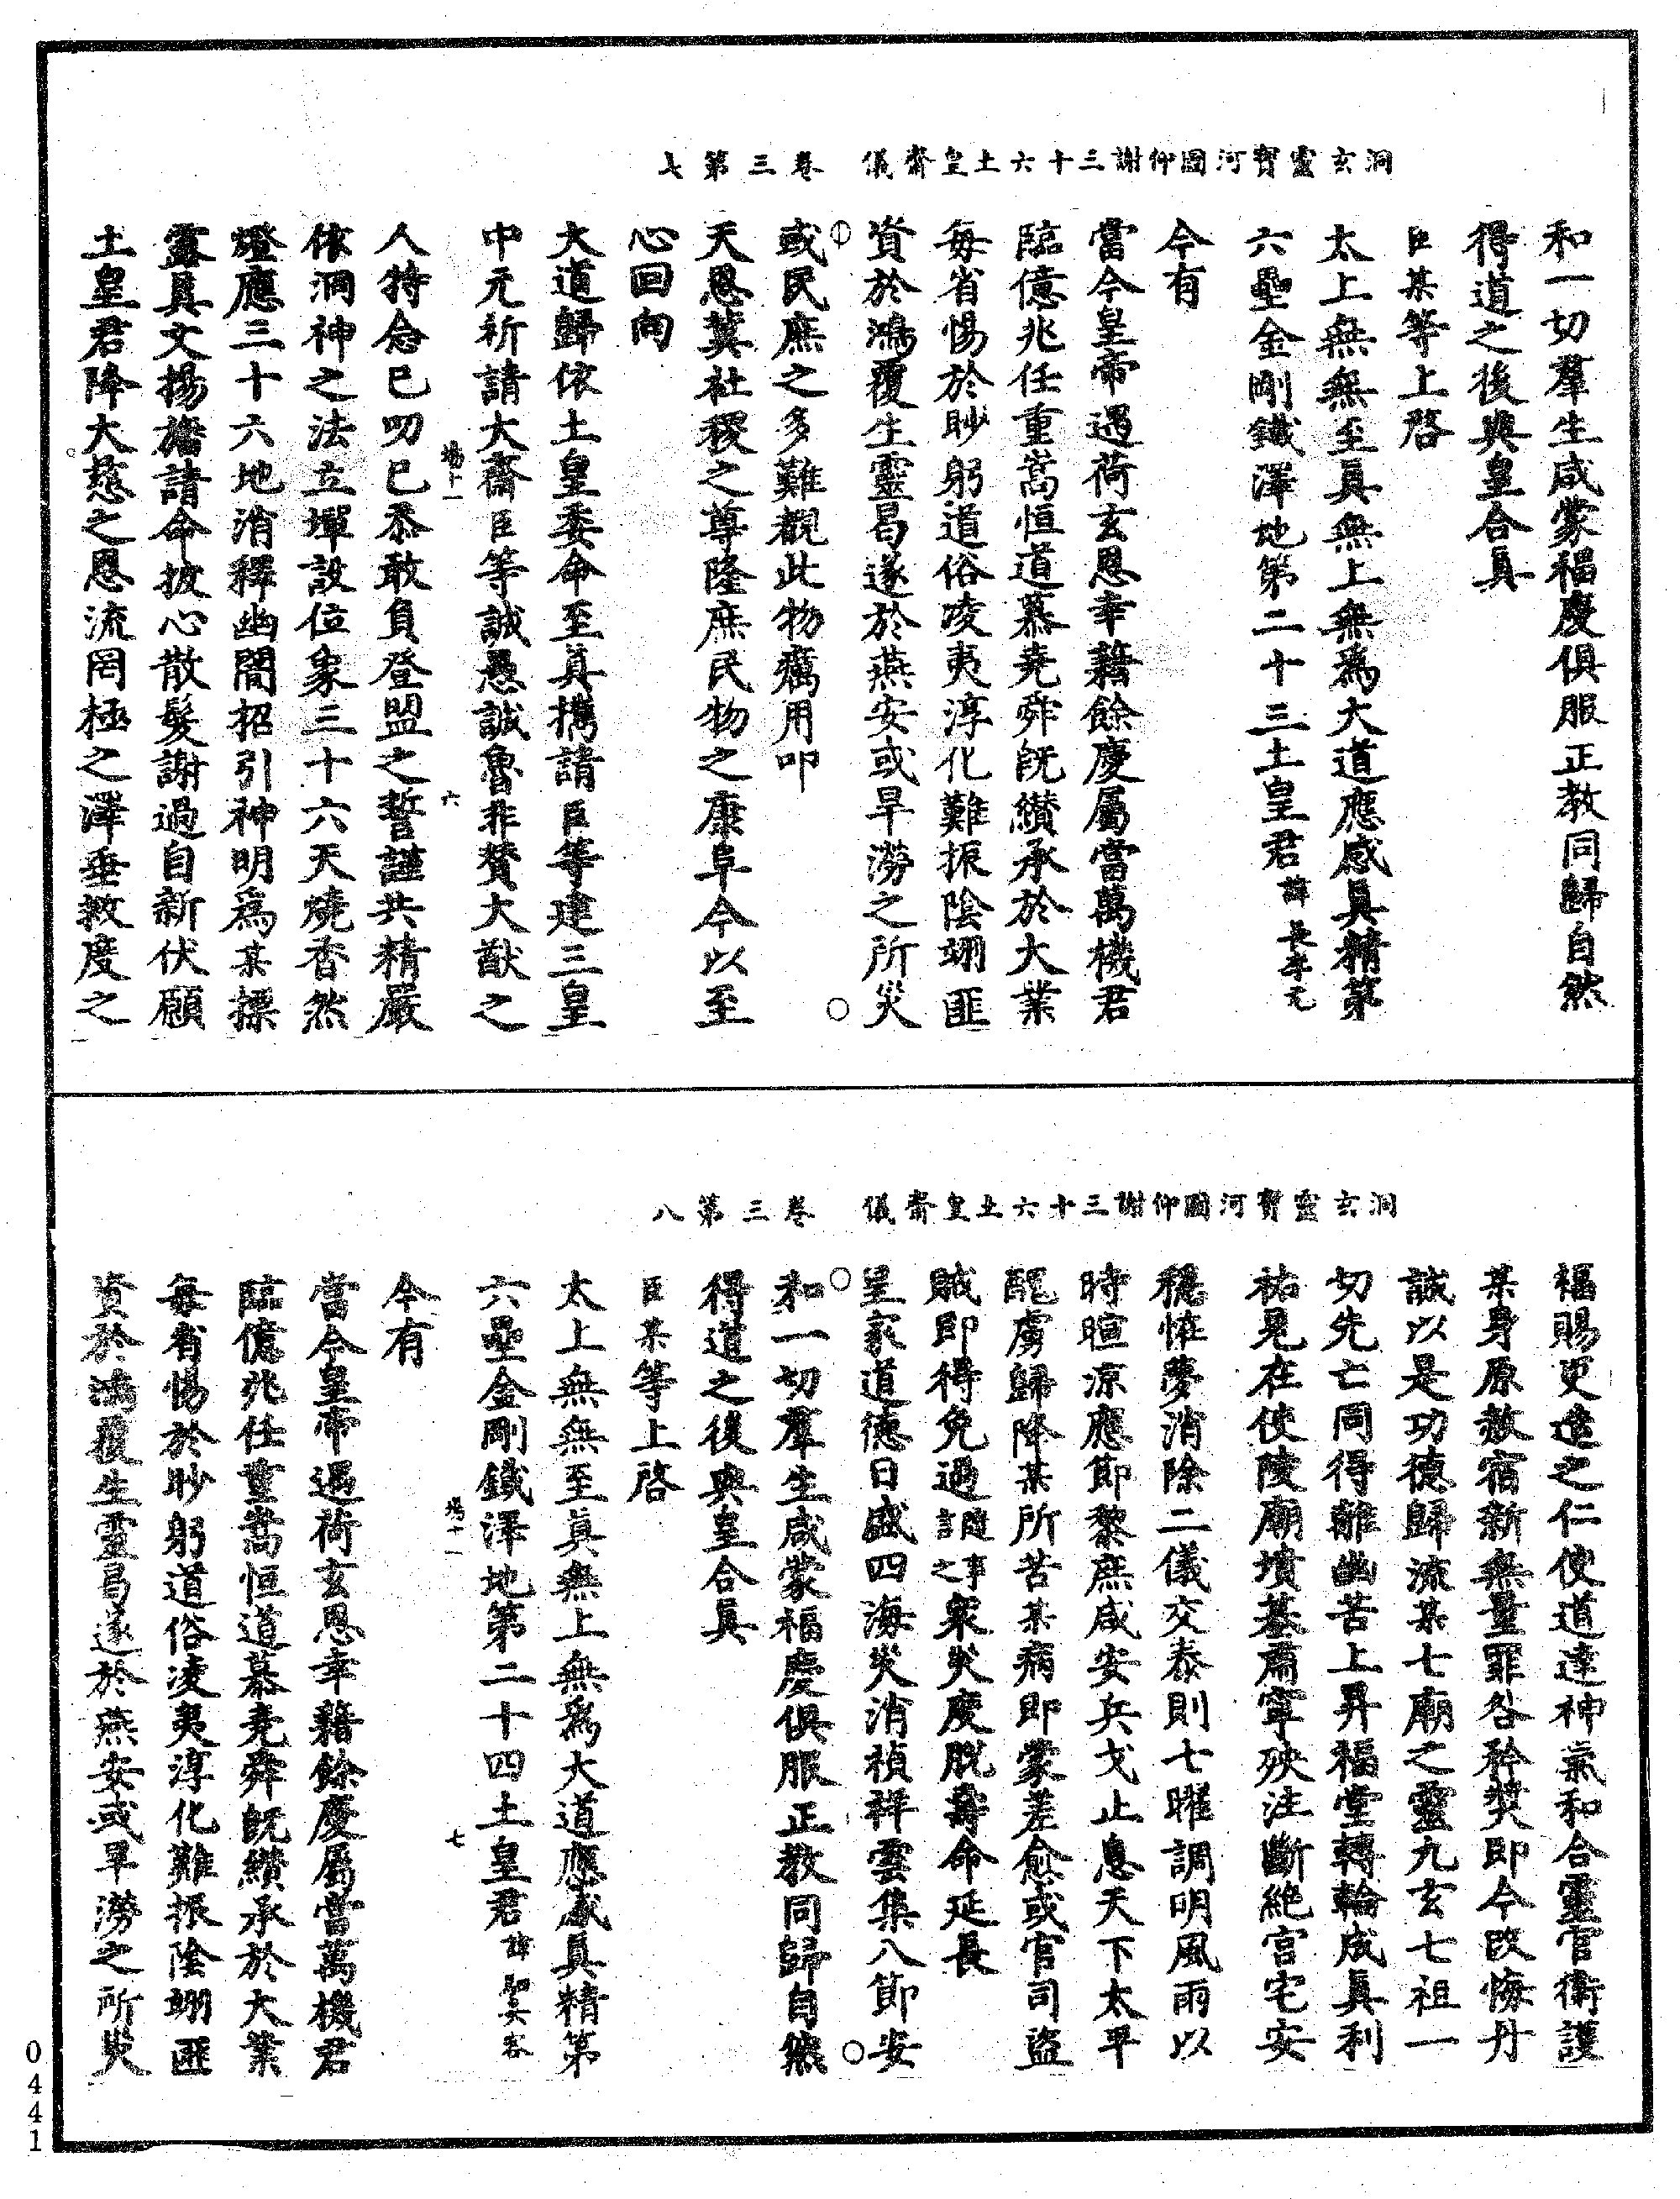 洞玄靈寶河圖仰謝三十六土皇齋儀　卷三第七
和一切羣生咸蒙福慶俱服正教同歸自然
得道之後與皇合眞
臣某等上啓
太上無無至眞無上無爲大道應感眞精第
六壘金剛鐵澤地第二十三土皇君諱長孝元
今有
當今皇帝遇荷玄恩幸藉餘慶屬當萬機君
臨億兆任重嵩恒道慕堯舜旣纘承於大業
每省惕於眇躬道俗陵夷淳化難振陰翊匪
資於鴻覆生靈曷遂於燕安或旱澇之所災
或民庶之多難覩此物癘用叩
天恩冀社稷之尊隆庶民物之康阜今以至
心回向
大道歸依土皇委命至眞攜請臣等建三皇
中元祈請大齋臣等誠愚誠魯非贊大猷之
人持念已叨已忝敢負登盟之誓謹共精嚴
依洞神之法立墠設位象三十六天燒香然
燈應三十六地消釋幽闇招引神明爲某操
露眞文揚旛請命披心散髮謝過自新伏願
土皇君降大慈之恩流罔極之澤垂救度之
傷十一
六
洞玄靈寶河圖仰謝三十六土皇齋儀　卷三第八
福賜更造之仁使道達神氣和合靈官衛護
某身原赦宿新無量罪咎矜奬即今改悔丹
誠以是功德歸流某七廟之靈九玄七祖一
切先亡同得離幽苦上昇福堂轉輪成眞利
祐見在使陵廟墳墓肅寧殃注斷絶宫宅安
穩恠夢消除二儀交泰則七曜調明風雨以
時暄凉應節黎庶咸安兵戈止息天下太平
醜虜歸降某所苦某病即蒙差愈或官司盗
賊即得免過隨事言之衆災度脱壽命延長
皇家道德日盛四海災消禎祥雲集八節安
和一切羣生咸蒙福慶俱服正教同歸自然
得道之後與皇合眞
臣某等上啓
太上無無至眞無上無爲大道應感眞精第
六壘金剛鐵澤地第二十四土皇君諱
今有
當今皇帝遇荷玄恩幸藉餘慶屬當萬機君
臨億兆任重嵩恒道慕堯舜旣纘承於大業
每省惕於眇躬道俗凌夷淳化難振陰翊匪
資於鴻覆生靈曷遂於燕安或旱澇之所災
傷十一
七
0441